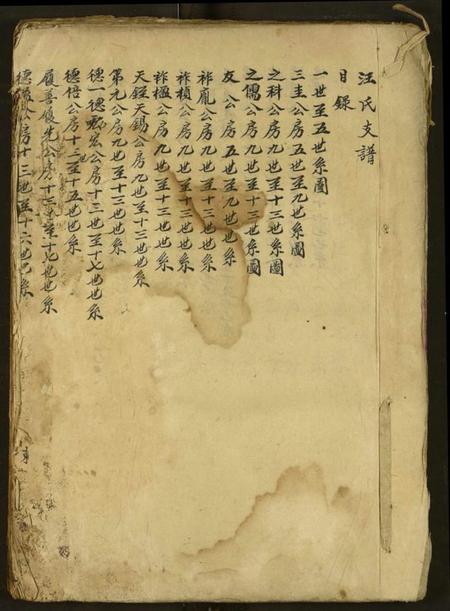 汪氏支譜
目録
一世至五世系圖
三圭公房五世至九世系圖
之科公房九世至十三世系圖
之儒公房九世至十三世系圖
友公房五世至九世世系
祚龐公房九世至十三世系
祚楨公房九世至十三世系
祚楹公房九世至十三世系
天錫公房九世至十三世世系
第元公房九世至十三世世系
德一德公房十三世至十七世世系
德倍公房十三至十五世世系
履善履先公房十三世至十七世世系
德公房十三世至十六世世系